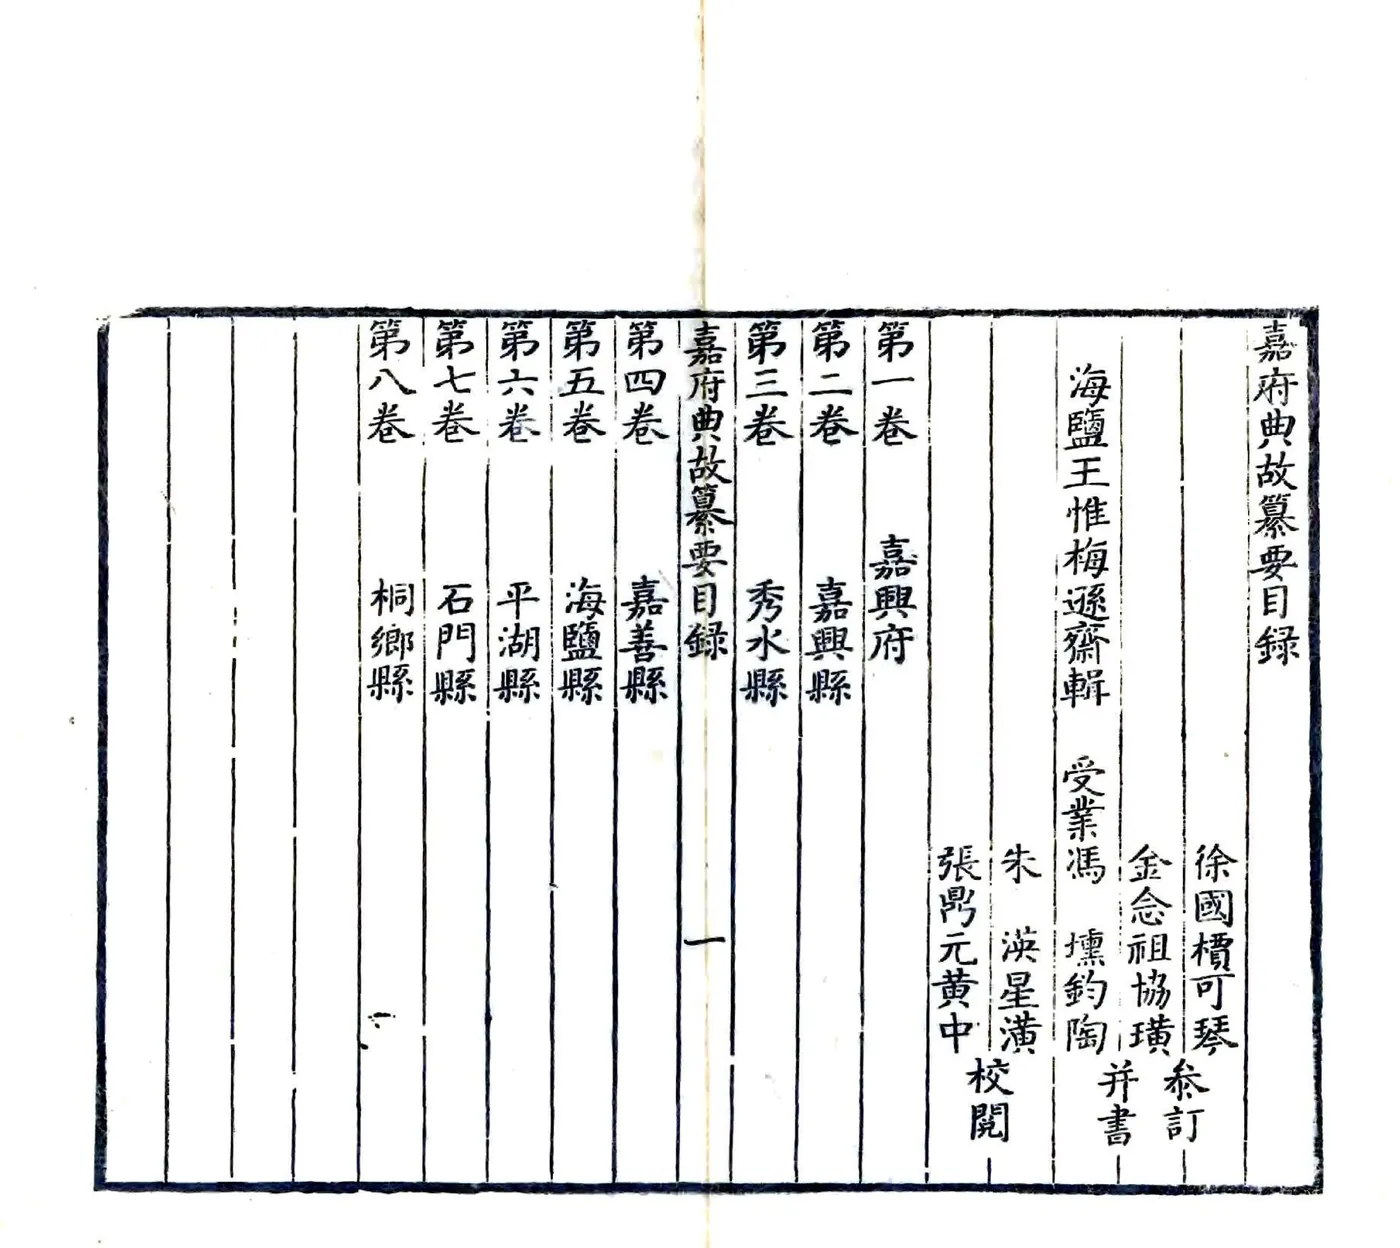 嘉府典故纂要目録
徐國櫝可琴
參訂
金念祖協璜
海鹽王惟梅遜齋輯 受業馮 壎鈞陶
并書
朱 渶星潢
張鼎元黄中
校閱
第一卷 嘉興府
第二卷 嘉興縣
第三卷 秀水縣
嘉府典故纂要目録 一
第四卷 嘉善縣
第五卷 海鹽縣
第六卷 平湖縣
第七卷 石門縣
第八卷 桐鄉縣